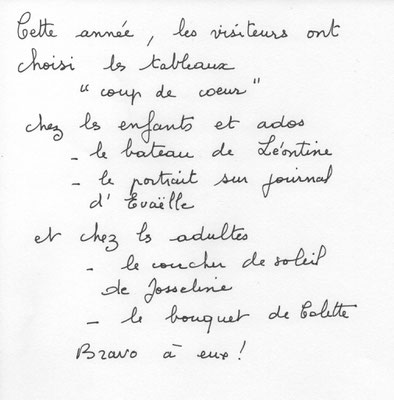 Cette année, les visiteurs ont
choisi les tableaux
"coup de coeur"
chez les enfants et ados
- le bateau de Léontine
- le portrait sur journal
d'Evaëlle
et chez les adultes
- le coucher de soleil
de Josseline
- le bouquet de Colette
Bravo à eux !